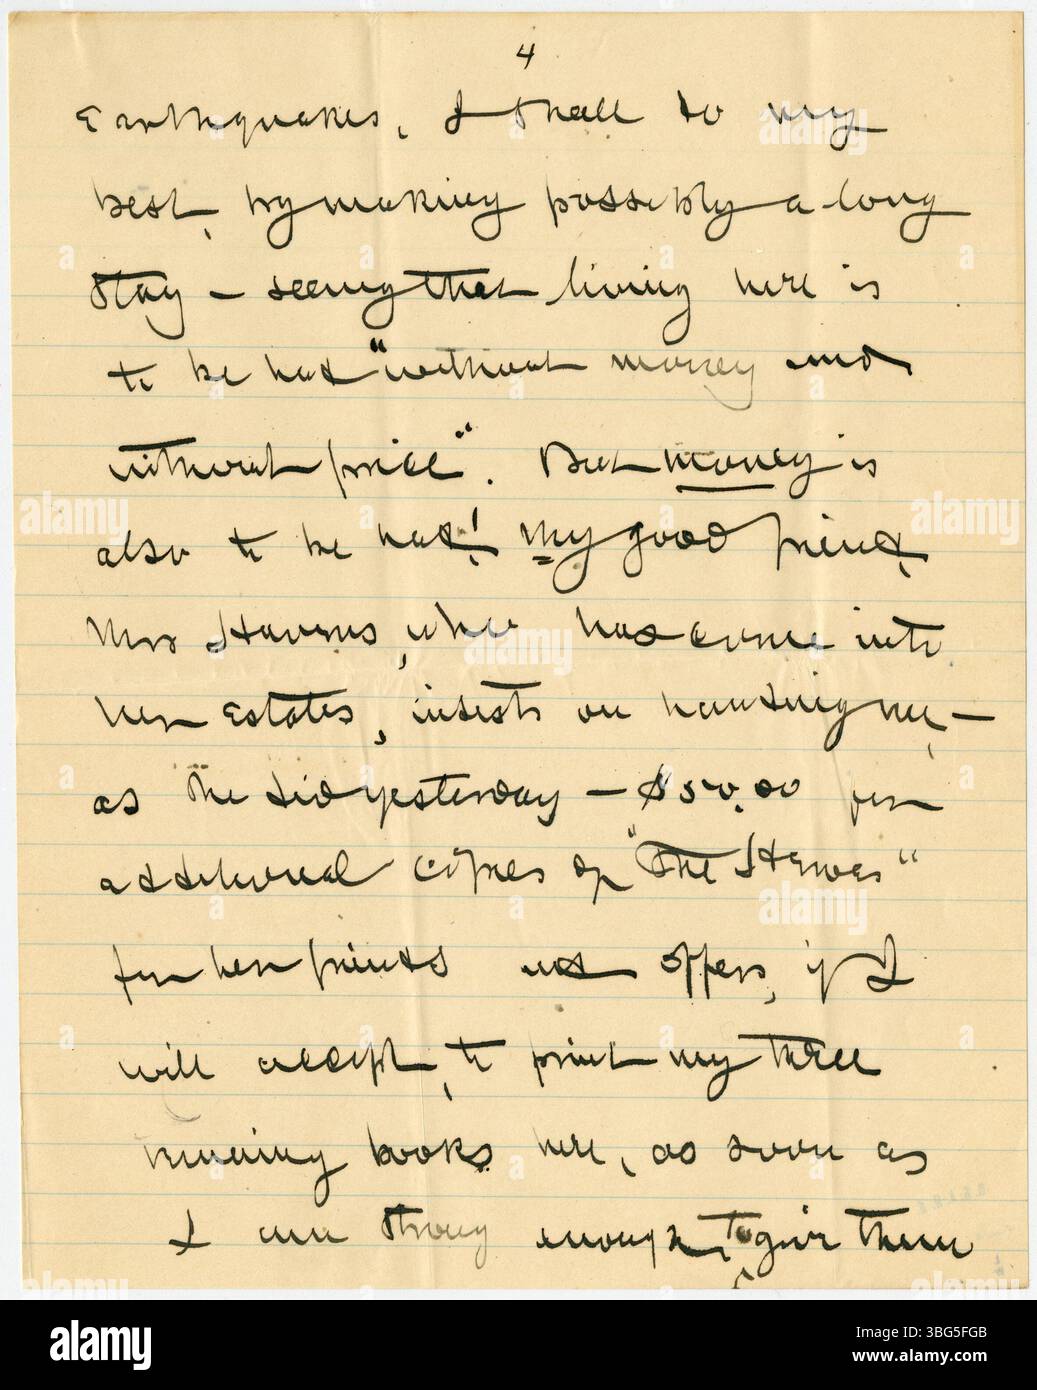 4
Earthquakes, I shall do my
best, by making possibly a long
stay – seeing that living here is
to be had "without money and
without price". But money is
also to be had! My good friend,
Mrs Havens, who has come into
her Estates, insists on handing me, –
as she did yesterday – $50.00 for
additional copies of "The Heroes"
for her friends and offers, if I
will accept, to print my three
running books here, as soon as
I am strong enough, to give them
alamy
Image ID: 3BG5FGB
www.alamy.com